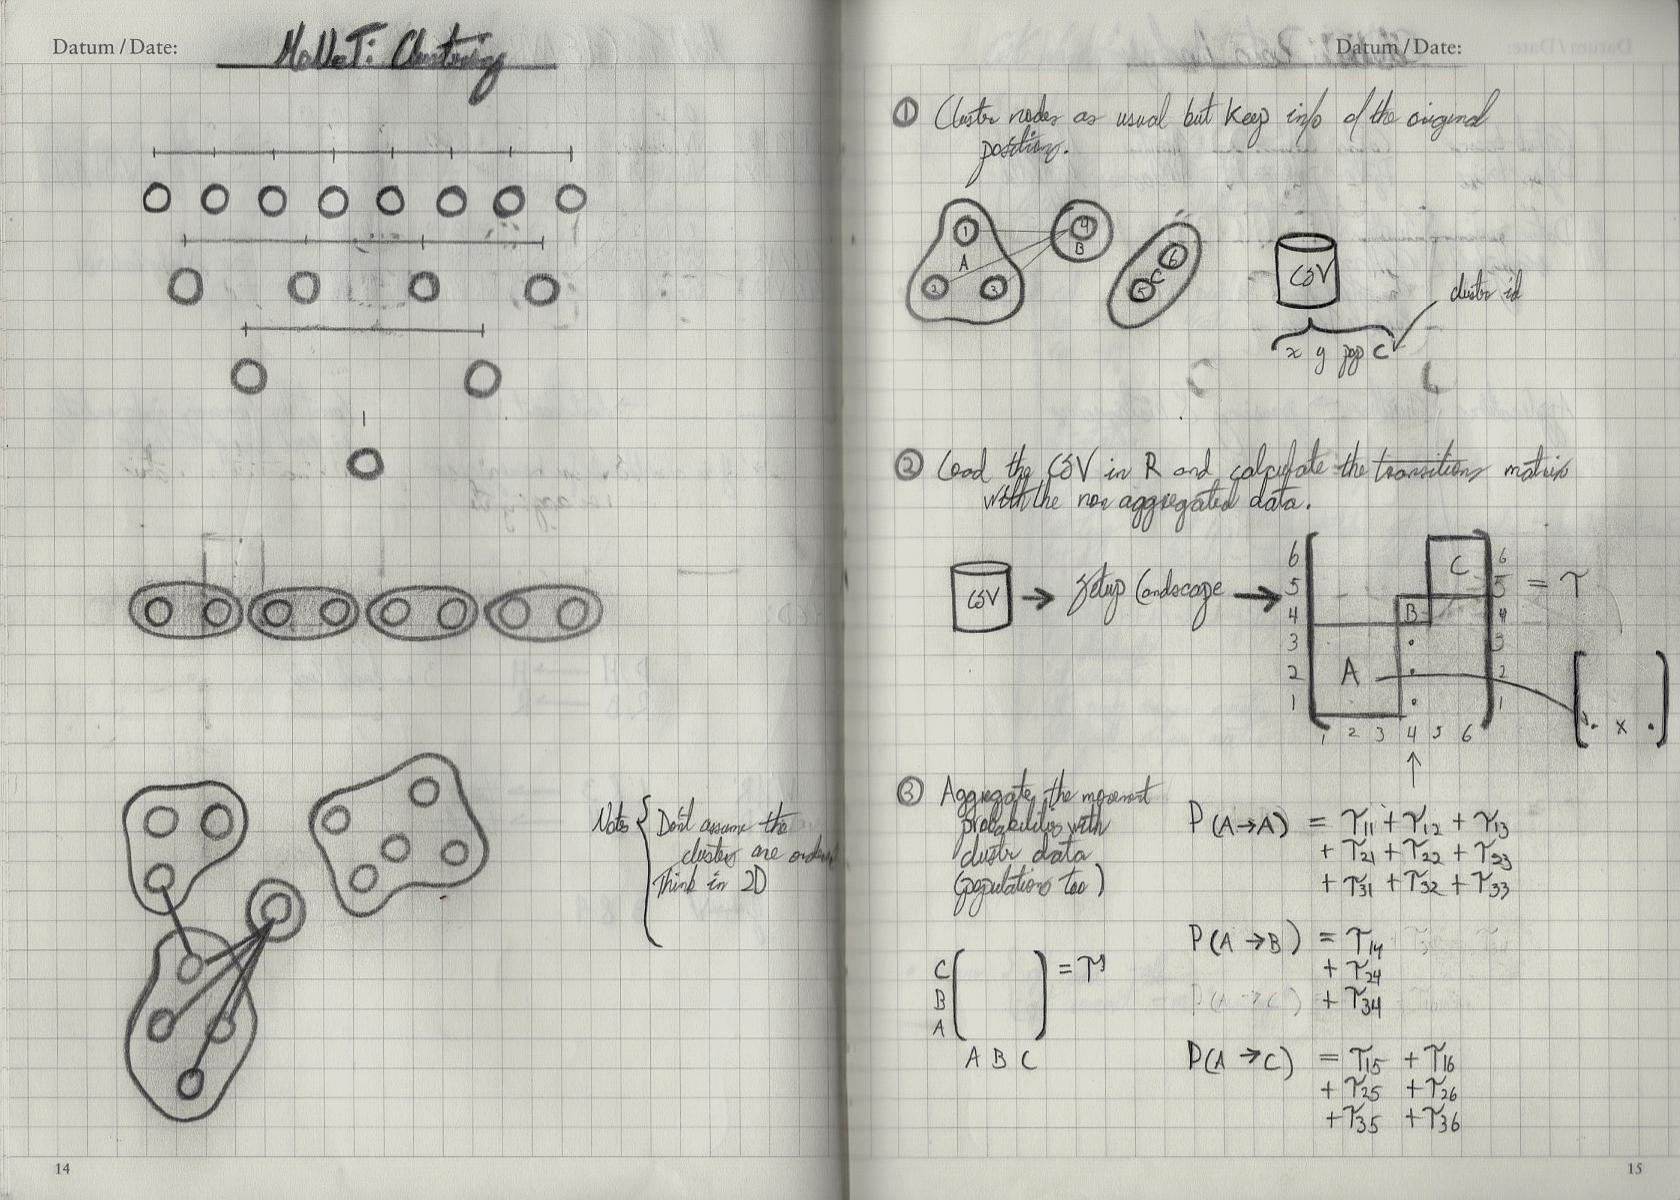 Datum / Date:
MoNeT: Clustering
Notes { Don't assume the
clusters are ordered
Think in 2D
14
Datum / Date:
① Cluster nodes as usual but keep info of the original
positions.
1
A
2 3
4
B
6
C
5
CSV
cluster id
x y pop C
② Load the CSV in R and calculate the transitions matrix
with the non aggregated data.
CSV → Setup Landscape →
6 C 6
5 5 = τ
4 B 4
3 3
2 A 2
1 1
1 2 3 4 5 6
x
③ Aggregate the movement
probabilities with
cluster data
(populations too)
P(A→A) = τ11 + τ12 + τ13
+ τ21 + τ22 + τ23
+ τ31 + τ32 + τ33
P(A→B) = τ14
+ τ24
+ τ34
P(A→C) = τ15 + τ16
+ τ25 + τ26
+ τ35 + τ36
C
B
A
= τ'
A B C
15